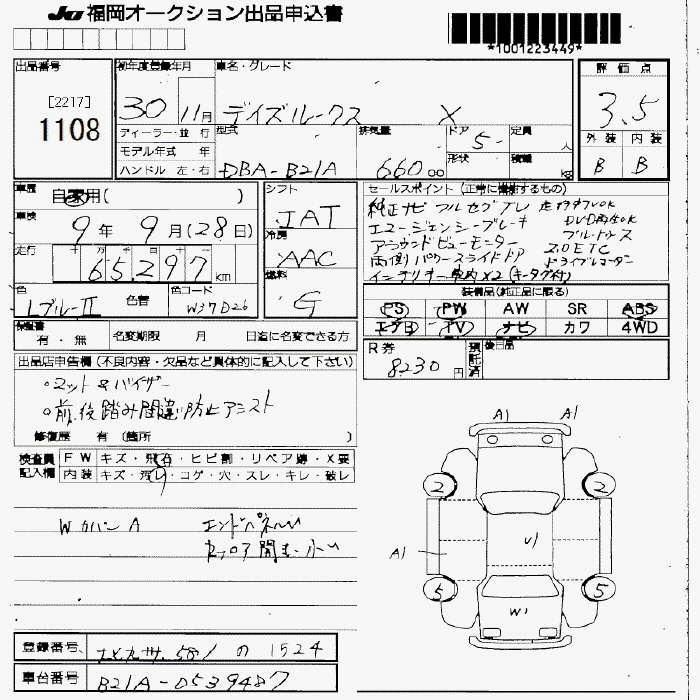 JU 福岡オークション出品申込書
*1001223449*
出品番号
[2217]
1108
初年度登録年月
30 11月
車名・グレード
デイズルークス X
評価点
3.5
外装 内装
B B
ディーラー・並行
モデル年式 年
ハンドル 左・右
型式
DBA-B21A
排気量
660 00
ドア
5
形状
定員
人
積載
kg
車歴
自家用( )
車検
9年 9月(28日)
走行
十 万 千 百 十 一
65,297 km
色
Lブルー II
色替
色コード
W37D26
シフト
IAT
冷房
AAC
燃料
G
セールスポイント (正常に機動するもの)
純正ナビ フルセグTV
DVD再生OK
エマージェンシーブレーキ
ブルートゥース
アラウンドビューモニター
2.0ETC
両側パワースライドドア
ドライブレコーダー
インテリキー 車内X2 (キータグ付)
装備品(純正品に限る)
PS PW AW SR ABS
エアB TV ナビ カワ 4WD
保証書
有・無
名変期限 月 日迄に名変できる方
R券
8230 円
預託済
後日品
出品店申告欄 (不良内容・欠品など具体的に記入して下さい)
・マット&バイザー
・前後踏み間違い防止アシスト
修復歴 有 (箇所 )
検査員記入欄
FW キズ・飛石・ヒビ割・リペア跡・X要
内装 キズ・汚レ・コゲ・穴・スレ・キレ・破レ
WカバーA
エンドパネル
A1 A1
2 2
A1
U1
5 5
W1
登録番号
581 の 1524
車台番号
B21A-0539487